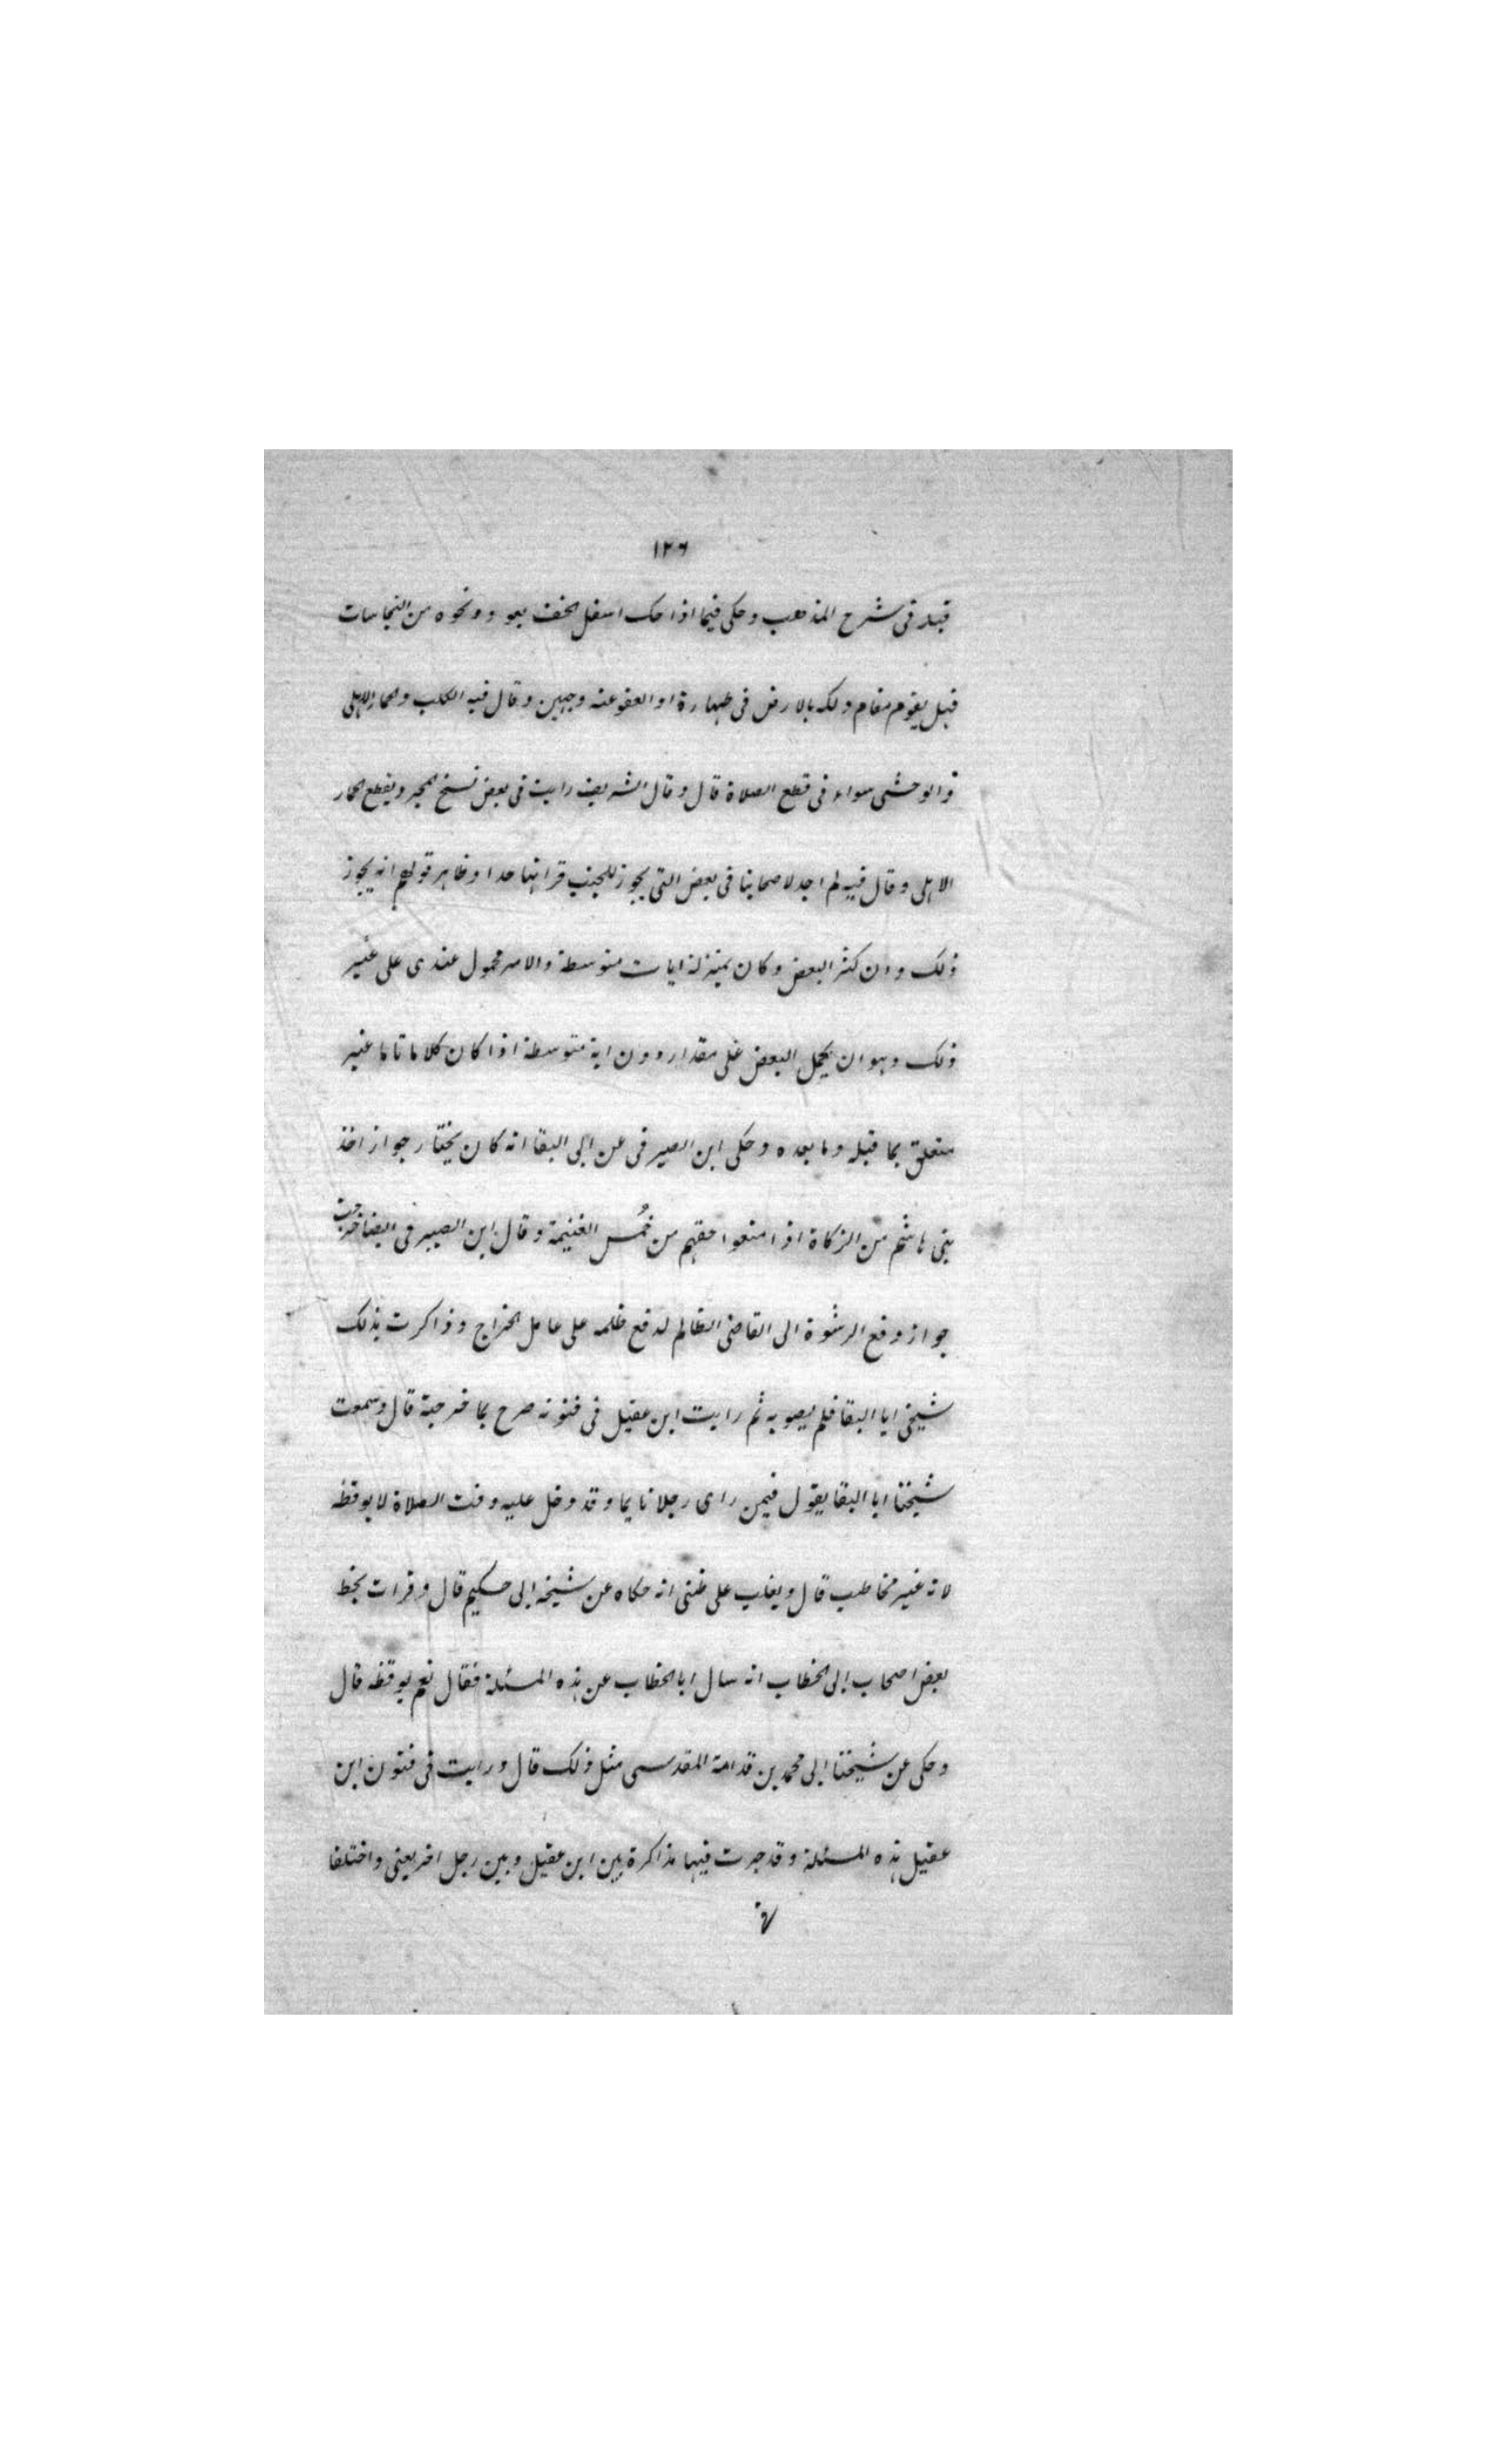 ١٢٦
قبله فى شرح المذهب وحكى فيما اذا حك اسفل الخف بعود ونحوه من النجاسات
قبل يقوم مقام دلكه بالارض فى طهارة او العفو عنه وجهين وقال فيه الكلب والحمار الاهلى
والوحشى سواء فى قطع الصلاة قال وقال الشريف رايت فى بعض نسخ المجرد يقطع الحمار
الاهلى وقال فيه لم اجد لاصحابنا فى بعض التى يجوز للجنب قراتها حدا وظاهر قولهم انه يجوز
ذلك وان كثر البعض وكان بمنزلة ايات متوسطة والامر محمول عندى على غير
ذلك وهو ان يحمل البعض على مقدار دون اية متوسطة اذا كان كلاما تاما غير
متعلق بما قبله وما بعده وحكى ابن الصيرفى عن ابى البقا انه كان يختار جواز اخذ
بنى هاشم من الزكاة اذا منعوا حقهم من خمس الغنيمة وقال ابن الصيرفى ايضا خرجت
جواز دفع الرشوة الى القاضى الظالم لدفع ظلمه على عامل الخراج وذاكرت بذلك
شيخى ابا البقا فلم يصوبه ثم رايت ابن عقيل فى فنونه صرح بما خرجته قال وسمعت
شيخنا ابا البقا يقول فيمن راى رجلا نايما وقد دخل عليه وقت الصلاة لا يوقظه
لانه غير مخاطب قال ويغلب على ظنى انه حكاه عن شيخه ابى حكيم قال وقرات بخط
بعض اصحاب ابى الخطاب انه سال ابا الخطاب عن هذه المسئلة فقال نعم يوقظه قال
وحكى عن شيخنا ابى محمد بن قدامة المقدسى مثل ذلك قال ورايت فى فنون ابن
عقيل هذه المسئلة وقد جرت فيها مذاكرة بين ابن عقيل وبين رجل اخر يعنى واختلفا